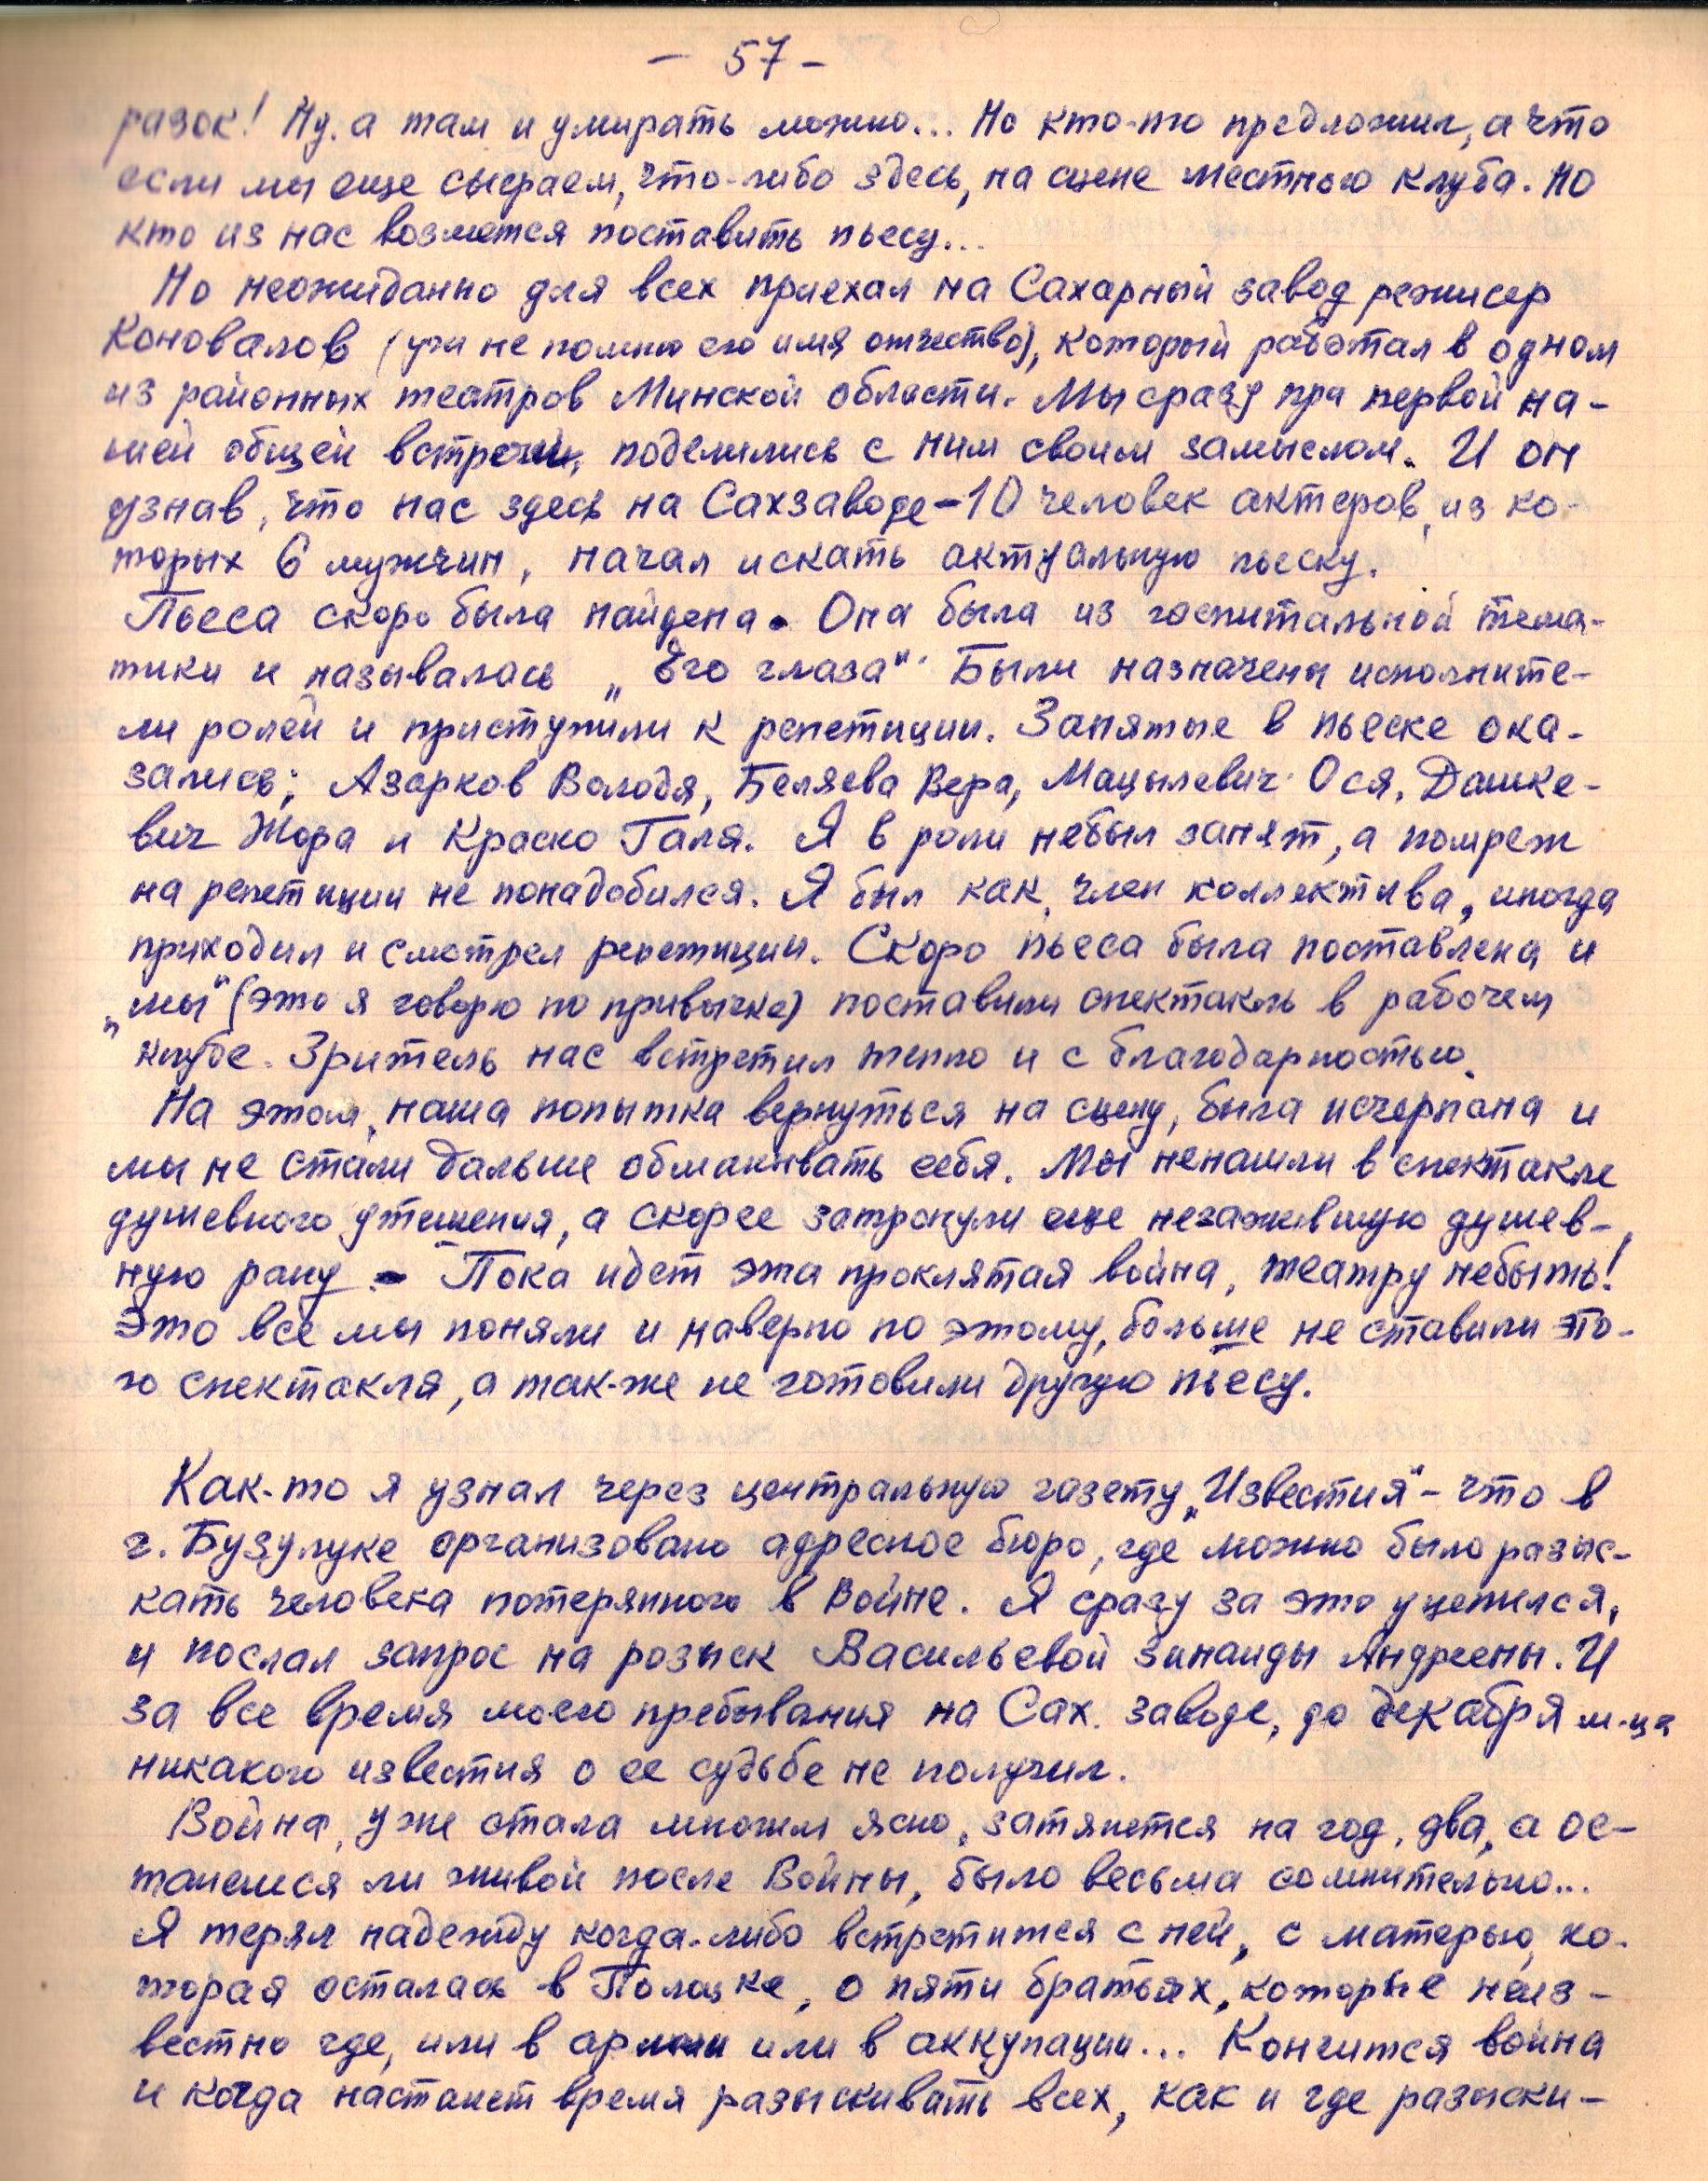 - 57 -
разок! Ну. а там и умирать можно... Но кто-то предложил, а что
если мы еще сыграем, что-либо здесь, на сцене местного клуба. Но
кто из нас возмется поставить пьесу...
Но неожиданно для всех приехал на Сахарный завод режисер
Коновалов (уж не помню его имя отчество), который работал в одном
из районных театров Минской области. Мы сразу при первой на-
шей общей встречи, поделились с ним своим замыслом. И он
узнав, что нас здесь на Сахзаводе-10 человек актеров, из ко-
торых 6 мужчин, начал искать актуальную пьеску.
Пьеса скоро была найдена. Она была из госпитальной тема-
тики и называлась „Его глаза". Были назначены исполните-
ли ролей и приступили к репетиции. Занятые в пьеске ока-
зались; Азарков Володя, Беляева Вера, Мацылевич Ося, Дашке-
вич Жора и Краско Галя. Я в роли небыл занят, а помреж
на репетиции не понадобился. Я был как, член коллектива, иногда
приходил и смотрел репетиции. Скоро пьеса была поставлена и
„мы" (это я говорю по привычке) поставили спектакль в рабочем
клубе. Зритель нас встретил тепло и с благодарностью.
На этом, наша попытка вернуться на сцену, была исчерпана и
мы не стали дальше обманывать себя. Мы ненашли в спектакле
душевного утешения, а скорее затронули еще незажившую душев-
ную рану. - Пока идет эта проклятая война, театру небыть!
Это все мы поняли и наверно по этому, больше не ставили это-
го спектакля, а так-же не готовили другую пьесу.
Как-то я узнал через центральную газету „Известия" - что в
г. Бузулуке организовано адресное бюро, где можно было разыс-
кать человека потерянного в войне. Я сразу за это уцепился,
и послал запрос на розыск Васильевой Зинаиды Андреены. И
за все время моего пребывания на Сах. заводе, до декабря м-ца
никакого известия о ее судьбе не получил.
Война, уже стала многим ясно, затянется на год, два, а ос-
танешся ли живой после Войны, было весьма сомнительно...
Я терял надежду когда-либо встретится с ней, с матерью, ко-
торая осталась в Полоцке, о пяти братьях, которые неиз-
вестно где, или в армии или в аккупации... Кончится война
и когда настанет время разыскивать всех, как и где разыски-